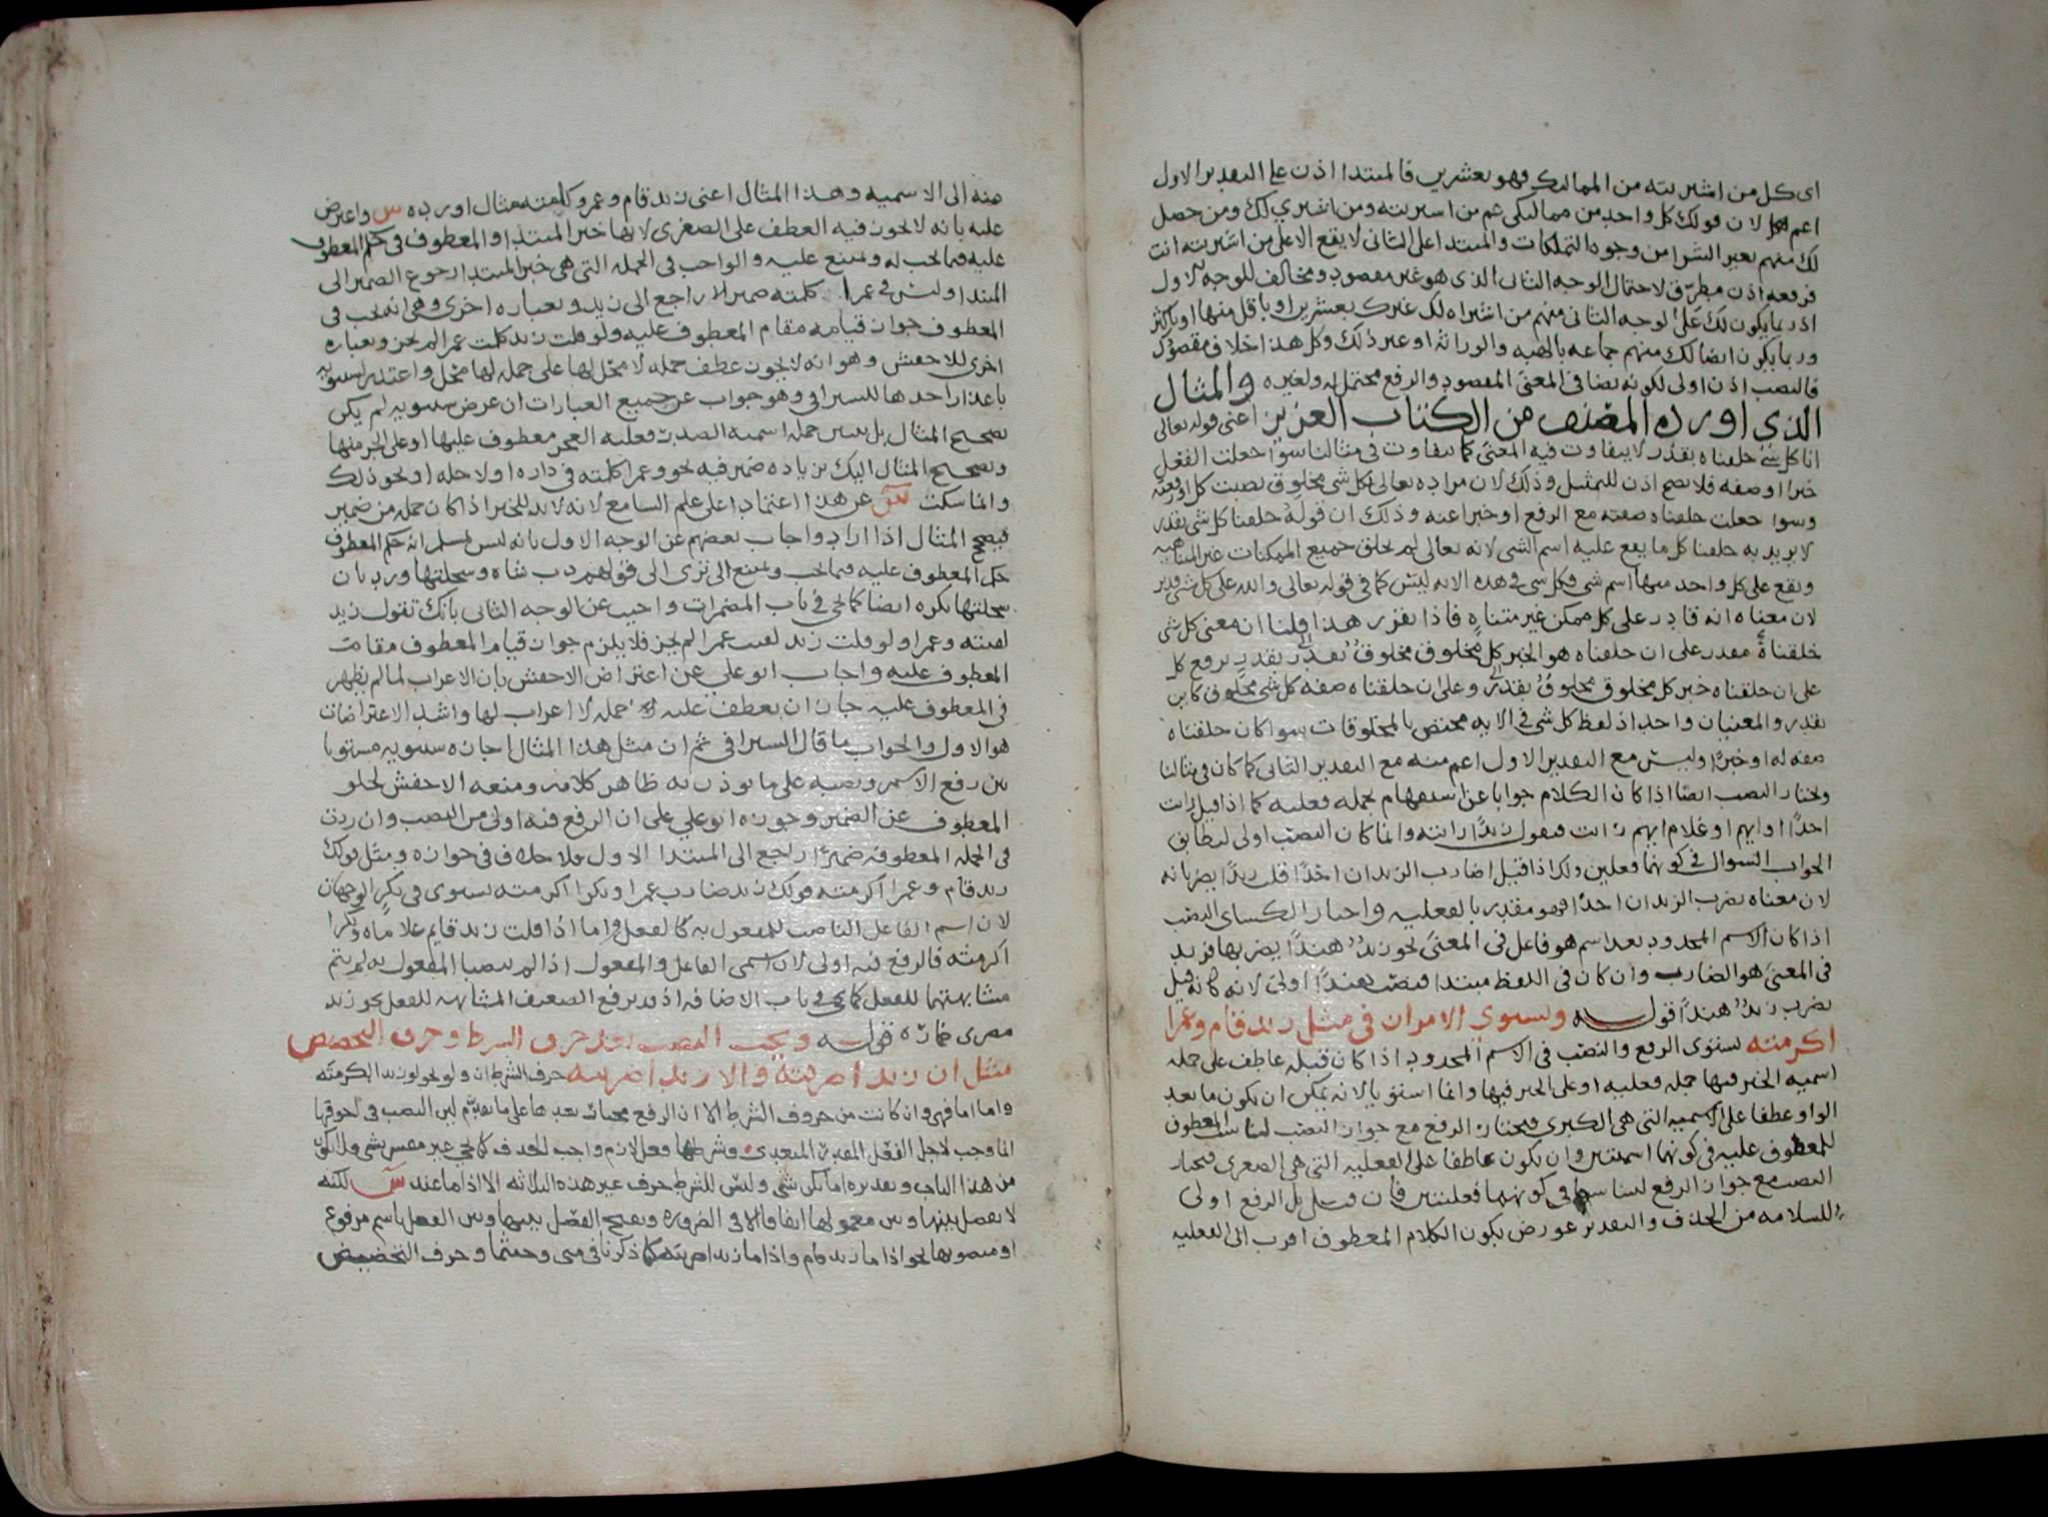 اى كل من اشتريته من المماليك فهو بعشرين فالمبتدا اذن على التقدير الاول
اعم لان قولك كل واحد من مماليكى عم من اشتريته ومن اشترى لك ومن حصل
لك منهم بغير الشرا من وجوه التملكات والمبتدا على الثانى لا يقع الا على من اشتريته انت
فرفعه اذن مطرق لاحتمال الوجه الثانى الذى هو غير مقصود ومخالف للوجه الاول
اذ ربما يكون لك على الوجه الثانى منهم من اشتراه لك غيرك بعشرين او باقل منها او باكثر
وربما يكون ايضا لك منهم جماعه بالهبه والوراثه او غير ذلك وكل هذا خلاف مقصودك
فالنصب اذن اولى لكونه نصا فى المعنى المقصود والرفع محتمل له ولغيره والمثال
الذى اورده المصنف من الكتاب العزيز اعنى قوله تعالى
انا كل شئ خلقناه بقدر لا يتفاوت فيه المعنى كما يتفاوت فى مثالنا سوا جعلت الفعل
خبرا او صفه فلا يصح اذن للتمثيل وذلك لان مراده تعالى بكل شى مخلوق نصبت كل او رفعته
وسوا جعلت خلقناه صفته مع الرفع او خبرا عنه وذلك ان قوله خلقنا كل شى بقدر
لا يريد به خلقنا كل ما يقع عليه اسم الشى لانه تعالى لم يخلق جميع الممكنات غير المتناهيه
ويقع على كل واحد منها اسم شى فكل شى فى هذه الايه ليس كما فى قوله تعالى والله على كل شى قدير
لان معناه انه قادر على كل ممكن غير متناه فاذا تقرر هذا قلنا ان معنى كل شى
خلقناه بقدر على ان خلقناه هو الخبر كل مخلوق مخلوق بقدر
على ان خلقناه خبر كل مخلوق مخلوق بقدر وعلى ان خلقناه صفه كل شى مخلوق كاين
بقدر والمعنيان واحد اذ لفظ كل شى فى الايه مختص بالمخلوقات سوا كان خلقناه
صفه له او خبرا وليس مع التقدير الاول اعم منه مع التقدير الثانى كما كان فى مثالنا
ويختار النصب ايضا اذا كان الكلام جوابا عن استفهام بجمله فعليه كما اذا قيل رايت
احدا او ايهم او غلام ايهم رايت فيقول زيدا رايته وانما كان النصب اولى ليطابق
الجواب السوال فى كونهما فعلين وكذا اذا قيل اضارب الزيدان احدا قلت زيدا يضربانه
لان معناه يضرب الزيدان احدا فهو مقدر بالفعليه واختار الكساى النصب
اذا كان الاسم المحدود بعد اسم هو فاعل فى المعنى نحو زيد هندا يضربها فزيد
فى المعنى هو الضارب وان كان فى اللفظ مبتدا فنصب هندا اولى لانه كانه قيل
يضرب زيد هندا قوله ويستوى الامران فى مثل زيد قام وعمرا
اكرمته يستوى الرفع والنصب فى الاسم المحدود اذا كان قبله عاطف على جمله
اسميه الخبر فيها جمله فعليه او على الخبر فيها وانما استويا لانه يمكن ان يكون ما بعد
الواو عطفا على الاسميه التى هى الكبرى فيختار الرفع مع جواز النصب ليناسب المعطوف
المعطوف عليه فى كونهما اسميتين وان يكون عاطفا على الفعليه التى هى الصغرى فيختار
النصب مع جواز الرفع ليتناسبا فى كونهما فعليتين فان قيل بل الرفع اولى
للسلامه من الحذف والتقدير عورض بكون الكلام المعطوف اقرب الى الفعليه
منه الى الاسميه وهذا المثال اعنى زيد قام وعمرو كلمته مثال اورده س واعترض
عليه بانه لا يجوز فيه العطف على الصغرى لانها خبر المبتدا والمعطوف فى حكم المعطوف
عليه فيما يجب له ويمتنع عليه والواجب فى الجمله التى هى خبر المبتدا رجوع الضمير الى
المبتدا وليس فى عمرا كلمته ضمير راجع الى زيد وبعباره اخرى وهى انه يجب فى
المعطوف جواز قيامه مقام المعطوف عليه ولو قلت زيد كلمت عمرا لم يجز وبعباره
اخرى للاخفش وهو انه لا يجوز عطف جمله لا محل لها على جمله لها محل واعتذر لسيبويه
باعذار احدها للسيرافى وهو جواب عن جميع العبارات ان غرض سيبويه لم يكن
تصحيح المثال بل تبيين جمله اسميه الصدر فعليه العجز معطوف عليها او على الخبر منها
وتصحيح المثال اليك بزياده ضمير فيه نحو وعمرا كلمته فى داره او لاجله او نحو ذلك
وانما سكت س عن هذا اعتمادا على علم السامع لانه لا بد للخبر اذا كان جمله من ضمير
فيصحح المثال اذا اراد واجاب بعضهم عن الوجه الاول بانه ليس بمسلم ان حكم المعطوف
حكم المعطوف عليه فيما يجب ويمتنع الى ترى الى قولهم رب شاه وسخلتها ورد بان
سخلتها نكره ايضا كما يجى فى باب المضمرات واجيب عن الوجه الثانى بانك تقول زيد
لقيته وعمرا ولو قلت زيد لقيت عمرا لم يجز فلا يلزم جواز قيام المعطوف مقام
المعطوف عليه واجاب ابو على عن اعتراض الاخفش بان الاعراب لما لم يظهر
فى المعطوف عليه جاز ان يعطف عليه جمله لا اعراب لها واشد الاعتراضات
هو الاول والجواب ما قال السيرافى ثم ان مثل هذا المثال اجازه سيبويه مستويا
بين رفع الاسم ونصبه على ما يوذن به ظاهر كلامه ومنعه الاخفش لخلو
المعطوف عن الضمير وجوزه ابو على على ان الرفع فيه اولى من النصب وان زدت
فى الجمله المعطوفه ضميرا راجعا الى المبتدا الاول فلا خلاف فى جوازه ومثل قولك
زيد قام وعمرا اكرمته قولك زيد ضارب عمرا وبكرا اكرمته يستوى فى بكر الوجهان
لان اسم الفاعل الناصب للمفعول به كالفعل واما اذا قلت زيد قايم غلاماه وبكرا
اكرمته فالرفع فيه اولى لان اسمى الفاعل والمفعول اذا لم ينصبا المفعول به لم يتم
مشابهتهما للفعل كما يجى فى باب الاضافه اذ قد يرفع الضعيف المشابهه للفعل نحو زيد
مصرى حماره قوله ويجب النصب بعد حرف الشرط وحرف التحضيض
مثل ان زيدا ضربته والا زيدا ضربته حرف الشرط ان ولو نحو لو زيدا اكرمته
واما اما فهى وان كانت من حروف الشرط الا ان الرفع مختار بعدها على ما تقدم لان النصب فى اخوتها
انما وجب لاجل الفعل المقدر المتعدى وشرطها فعل لازم واجب الحذف كما يجى غير مفسر بشى ولا يكون
من هذا الباب وتقديره اما يكن شى وليس للشرط حرف غير هذه الثلاثه الا اذ ما عند س لكنه
لا يفصل بينها وبين معمولها اتفاقا الا فى الضروره ويقبح الفصل بينها وبين الفعل باسم مرفوع
او منصوب نحو اذا ما زيد قام واذا ما زيدا ضربته كما ذكرنا فى متى وحيثما وحرف التحضيض